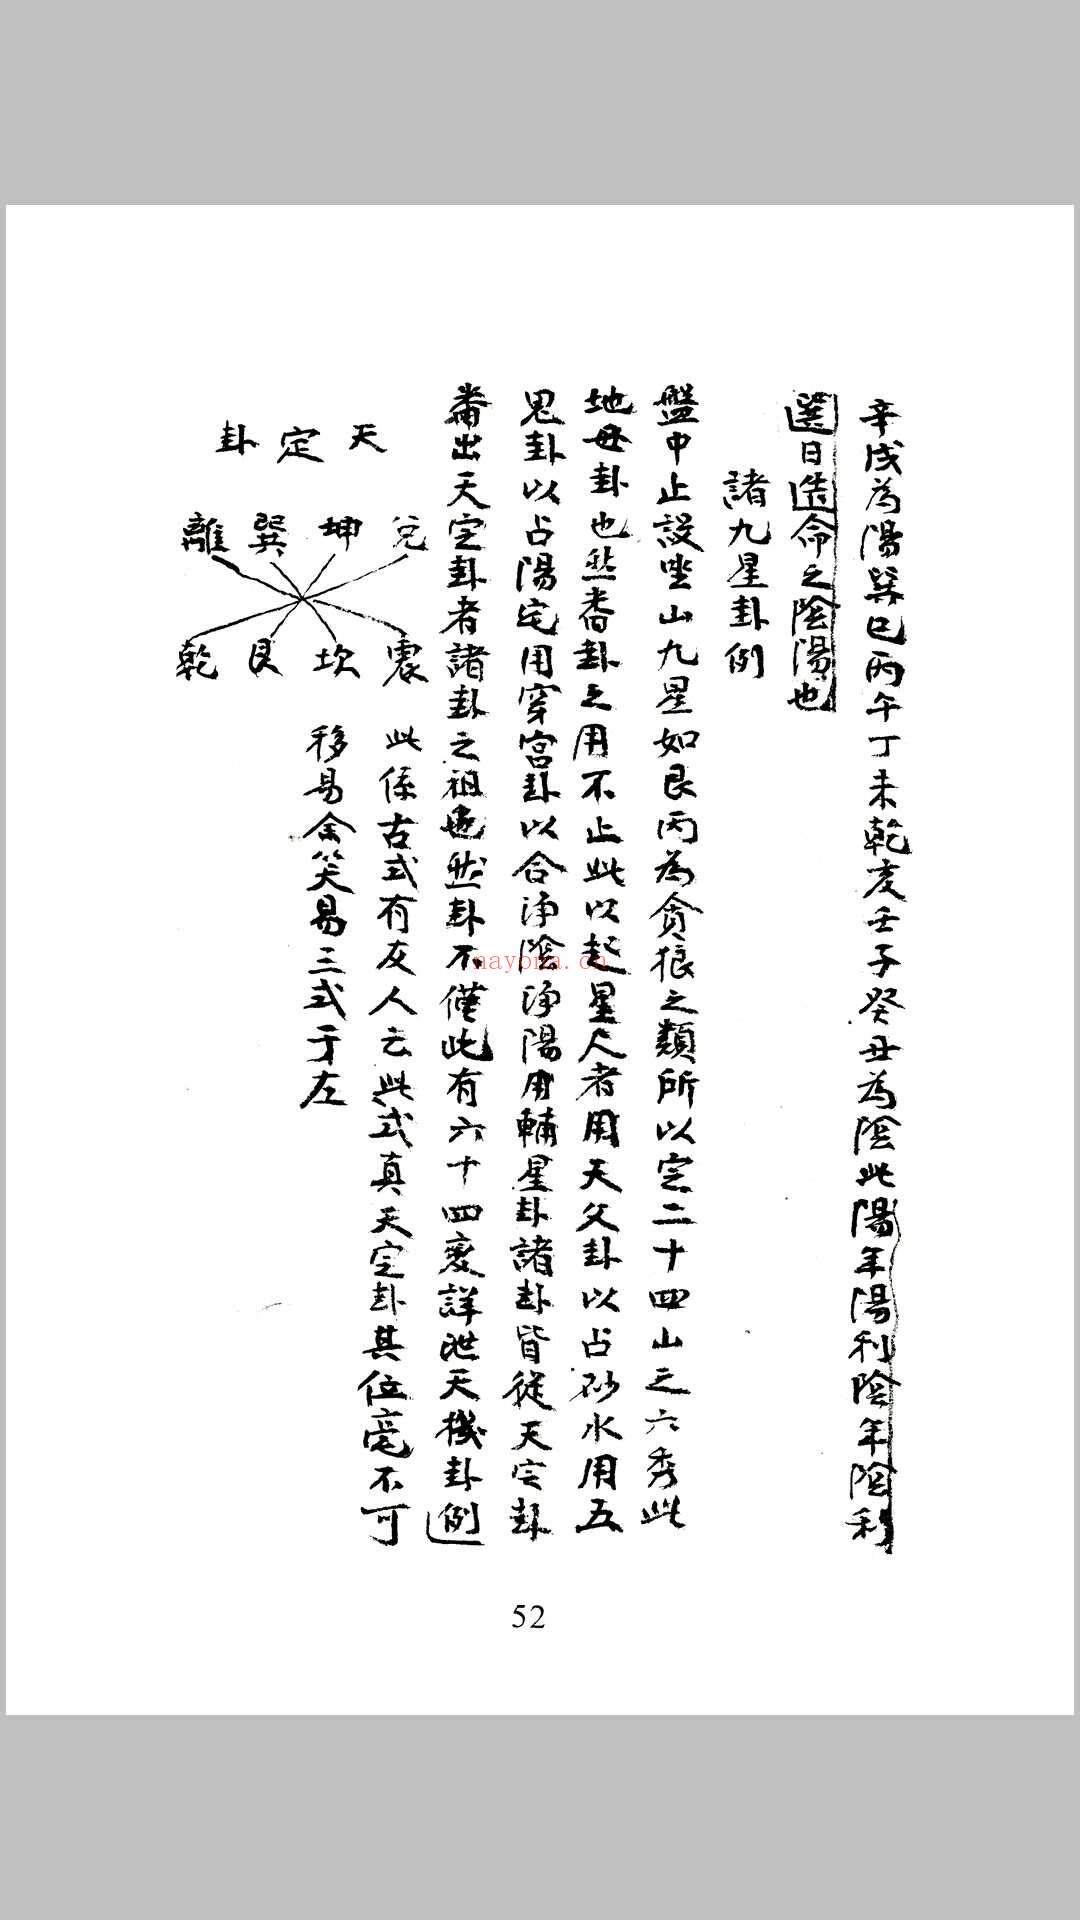 辛戌為陽巽巳丙午丁未乾亥壬子癸丑為陰此陽年陽利陰年陰利
選日造命之陰陽也
諸九星卦例
盤中止設坐山九星如艮丙為貪狼之類所以定二十四山之六秀此
地母卦也然番卦之用不止此以起星尺者用天父卦以占砂水用五
鬼卦以占陽宅用穿宮卦以合淨陰淨陽用輔星卦諸卦皆從天定卦
番出天定卦者諸卦之祖也然卦不僅此有六十四変詳泄天機卦例
天定卦
兌坤巽離
震坎艮乾
此係古式有友人云此式真天定卦其位毫不可
移易余笑易三式于左
nayona.cn
52